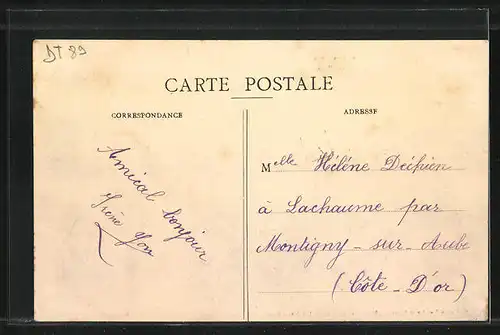 DT 89
CARTE POSTALE
CORRESPONDANCE
ADRESSE
Amical bonjour
Irène
Melle Hélène
à Lachaume par
Montigny-sur-Aube
(Côte-D'or)